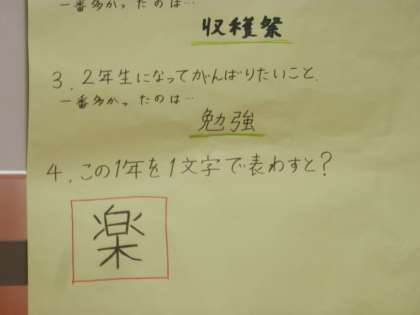 一番多かったのは…
収穫祭
3. 2年生になってがんばりたいこと.
一番多かったのは…
勉強
4. この1年を1文字で表わすと?
楽